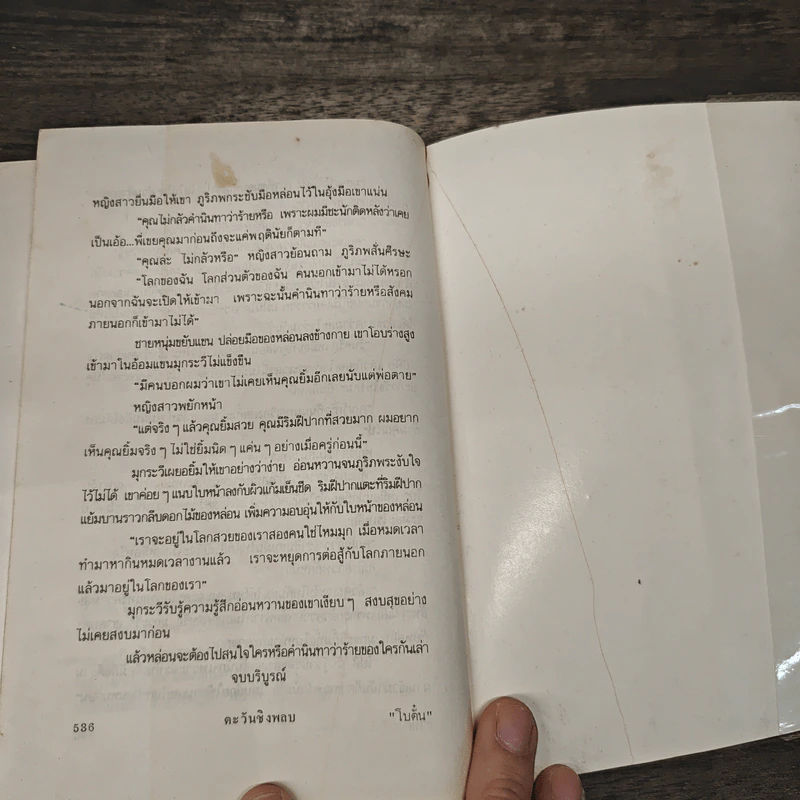 หญิงสาวยื่นมือให้เขา ภูริภพกระชับมือหล่อนไว้ในอุ้งมือเขาแน่น
“คุณไม่กลัวคำนินทาว่าร้ายหรือ เพราะผมมีชะนักติดหลังว่าเคย
เป็นเอ้อ...พี่เขยคุณมาก่อนถึงจะแค่พฤตินัยก็ตามที”
“คุณล่ะ ไม่กลัวหรือ” หญิงสาวย้อนถาม ภูริภพสั่นศีรษะ
“โลกของฉัน โลกส่วนตัวของฉัน คนนอกเข้ามาไม่ได้หรอก
นอกจากฉันจะเปิดให้เข้ามา เพราะฉะนั้นคำนินทาว่าร้ายหรือสังคม
ภายนอกก็เข้ามาไม่ได้”
ชายหนุ่มขยับแขน ปล่อยมือของหล่อนลงข้างกาย เขาโอบร่างสูง
เข้ามาในอ้อมแขนมุกระวีไม่แข็งขืน
“มีคนบอกผมว่าเขาไม่เคยเห็นคุณยิ้มอีกเลยนับแต่พ่อตาย”
หญิงสาวพยักหน้า
“แต่จริง ๆ แล้วคุณยิ้มสวย คุณมีริมฝีปากที่สวยมาก ผมอยาก
เห็นคุณยิ้มจริง ๆ ไม่ใช่ยิ้มนิด ๆ แค่น ๆ อย่างเมื่อครู่ก่อนนี้”
มุกระวีเผยอยิ้มให้เขาอย่างว่าง่าย อ่อนหวานจนภูริภพระงับใจ
ไว้ไม่ได้ เขาค่อย ๆ แนบใบหน้าลงกับผิวแก้มเย็นชืด ริมฝีปากแตะที่ริมฝีปาก
แย้มบานราวกลีบดอกไม้ของหล่อน เพิ่มความอบอุ่นให้กับใบหน้าของหล่อน
“เราจะอยู่ในโลกสวยของเราสองคนใช่ไหมมุก เมื่อหมดเวลา
ทำมาหากินหมดเวลางานแล้ว เราจะหยุดการต่อสู้กับโลกภายนอก
แล้วมาอยู่ในโลกของเรา”
มุกระวีรับรู้ความรู้สึกอ่อนหวานของเขาเงียบ ๆ สงบสุขอย่าง
ไม่เคยสงบมาก่อน
แล้วหล่อนจะต้องไปสนใจใครหรือคำนินทาว่าร้ายของใครกันเล่า
จบบริบูรณ์
536 ตะวันชิงพลบ "โบตั๋น"